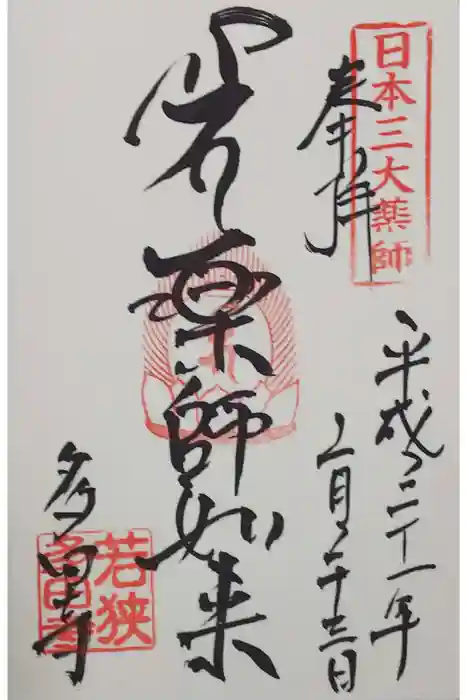 日本三大薬師
奉拝
平成三十一年
二月二十三日
薬師如来
多田寺
若狭
多田寺